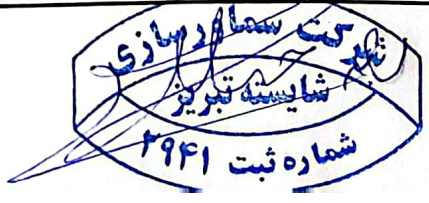 شرکت سماورسازی
شایسته تبریز
شماره ثبت ۲۹۴۱